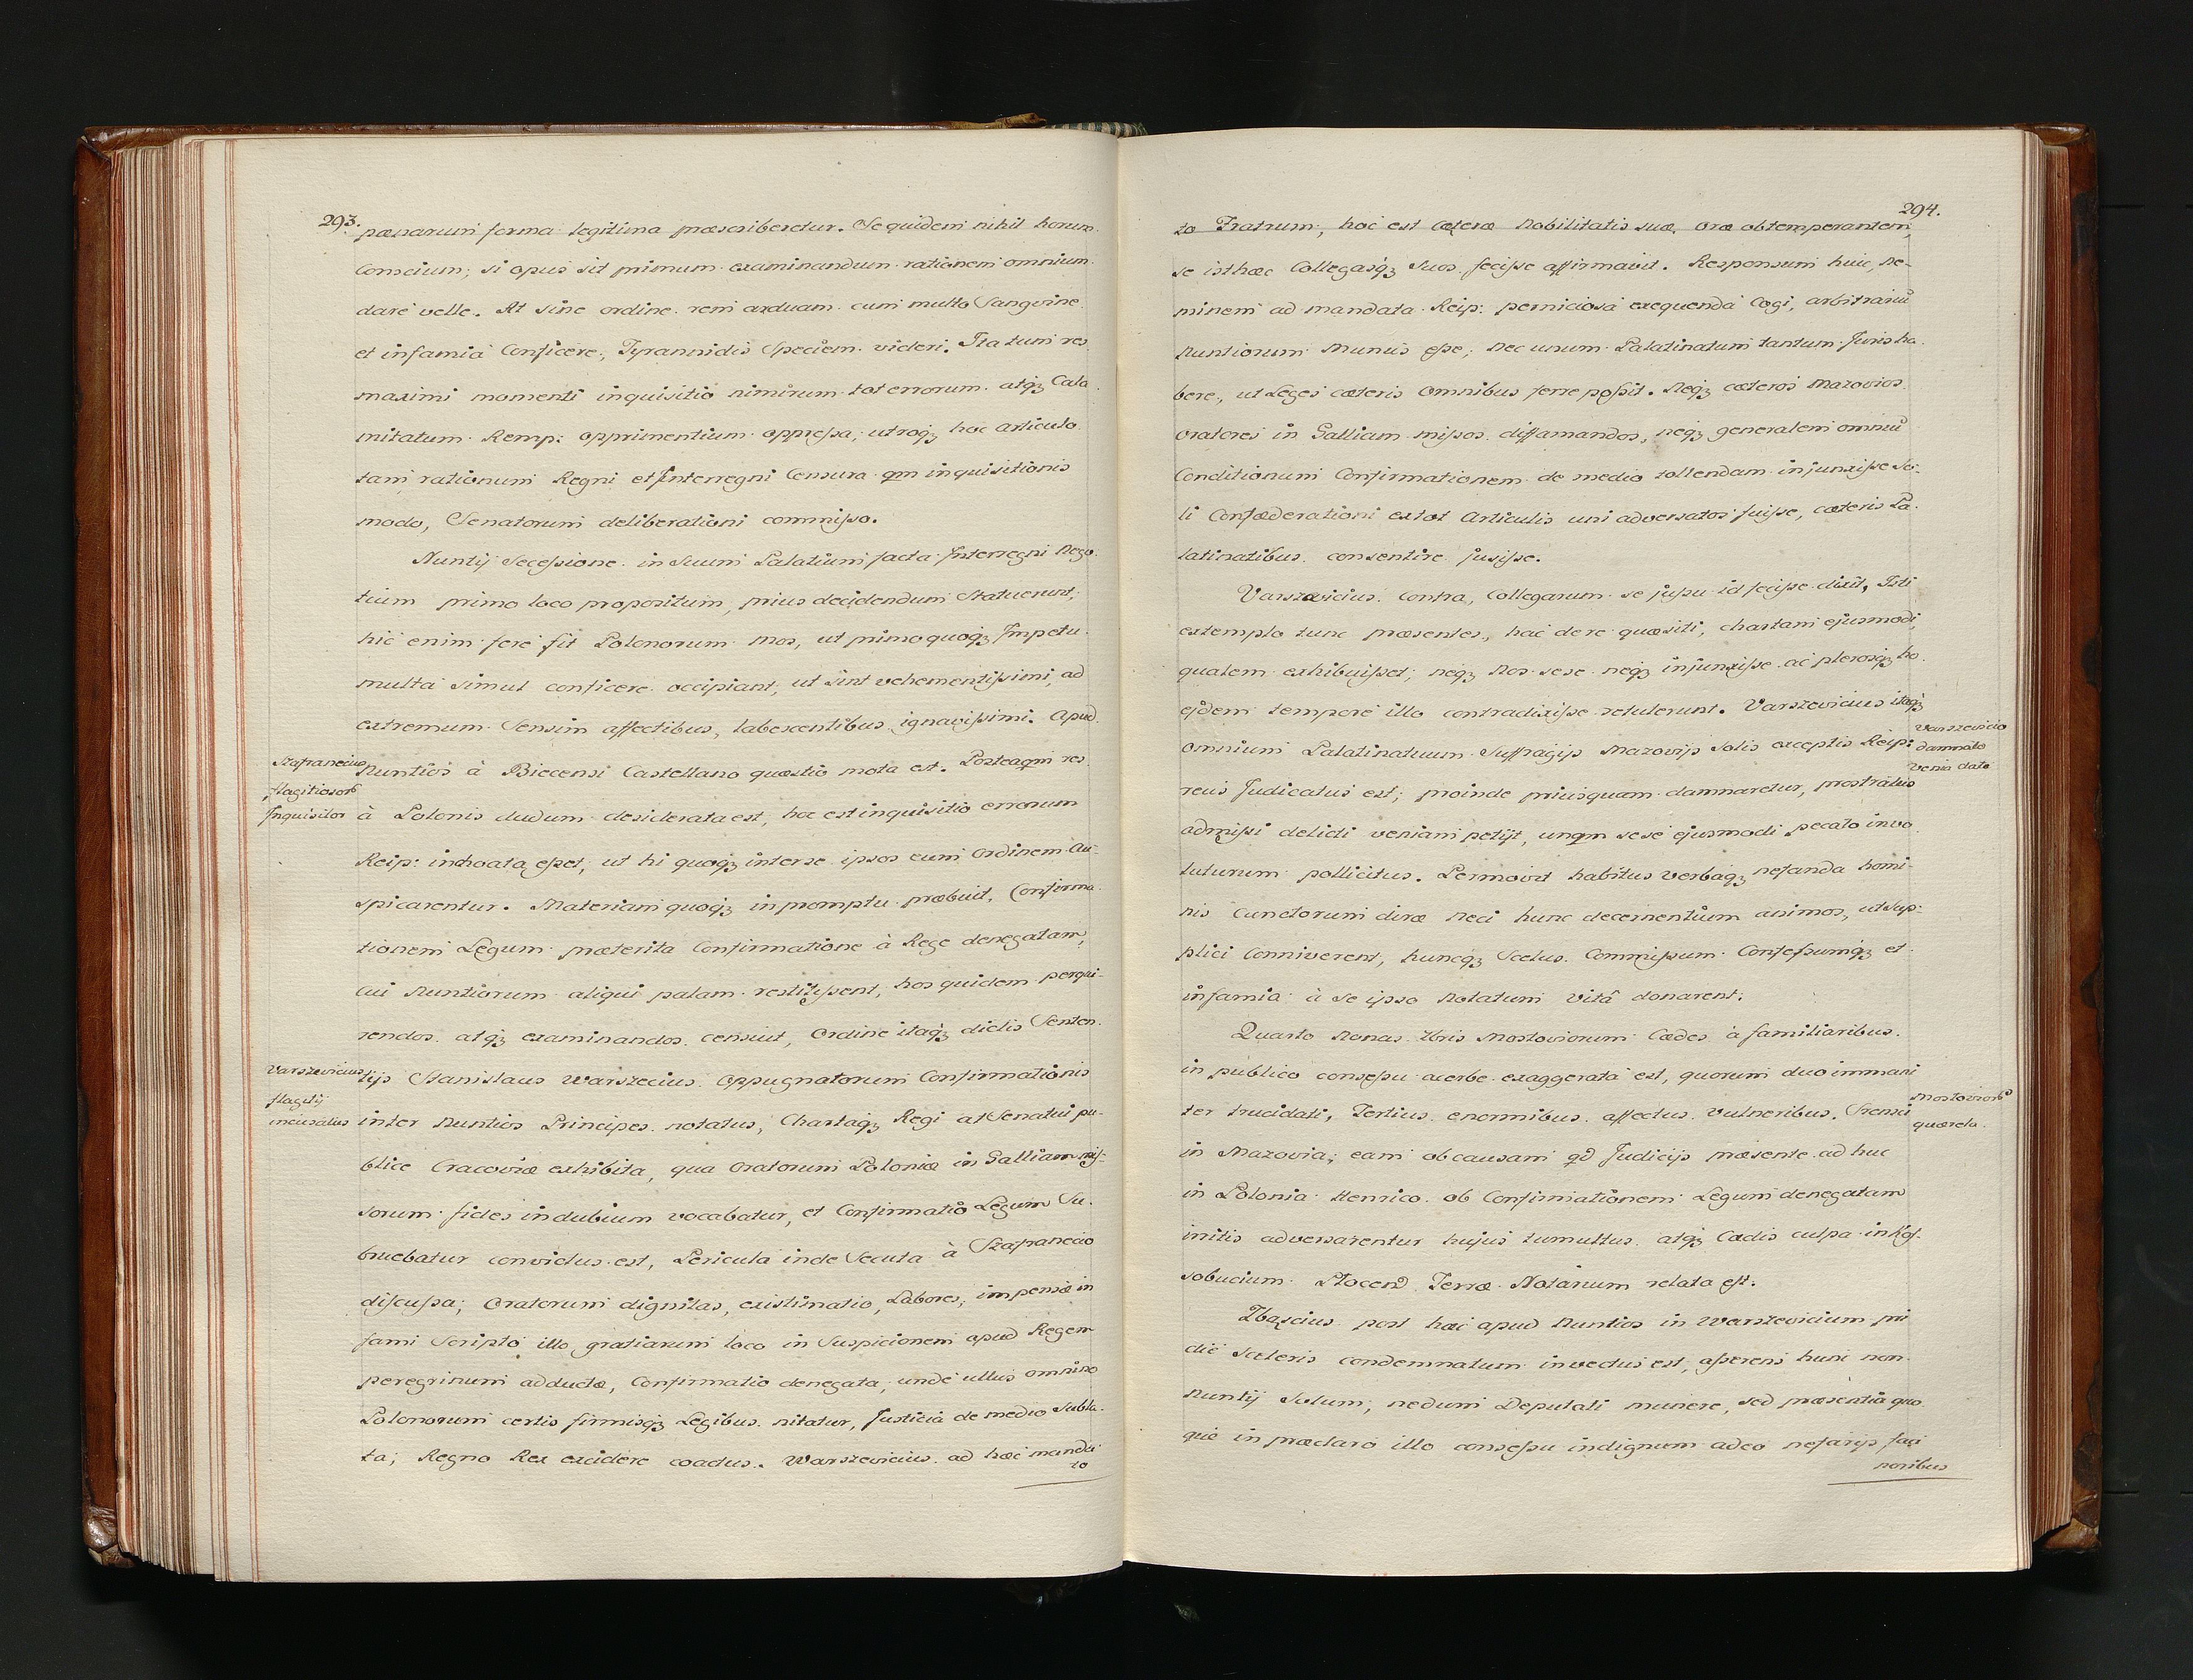 293.
pænarum forma legitima præscriberetur. Se quidem nihil horum
Conscium; si opus sit primum examinandum rationem omnium
dare velle. At sine ordine rem arduam cum multo Sangvine
et infamia Conficere, Tyrannidis Speciem videri. Ita tum res
maximi momenti inquisitio nimirum tot errorum atq3 Cala
mitatum Remp: opprimentium oppressa; utroq3 hoc articulo
tam rationum Regni et Interregni Censura qm inquisitionis
modo, Senatorum deliberationi commisso.
Nuntij Secessione in Suum Palatium facta Interregni Nego
tium primo loco propositum, prius decidendum Statuerunt;
hic enim fere fit Polonorum mos, ut primo quoq3 Impetu
multa simul conficere occipiant; ut sint vehementissimi, ad
extremum Sensim affectibus, labescentibus ignavissimi. Apud
Szafrancius
flagitiosorũ
Inquisitor
Nuntios à Biecensi Castellano quæstio mota est. Posteaqm res
à Polonis dudum desiderata est, hoc est inquisitio errorum
Reip: inchoata esset, ut hi quoq3 inter se ipsos eum Ordinem Au-
spicarentur. Materiam quoq3 in promptu præbuit. Confirma
tionem Legum præterita Confirmatione à Rege denegatam,
cui Nuntiorum aliqui palam restitissent, hos quidem perqui-
rendos atq3 examinandos censuit, Ordine itaq3 dictis Senten
Varszevicius
flagitij
incusatus
tijs Stanislaus Warszecius oppugnatorum Confirmationis
inter Nuntios Principes notatus, Chartaq3 Regi at Senatui pu-
blice Cracoviæ exhibita, qua Oratorum Poloniæ in Galliam mis-
sorum fides in dubium vocabatur, et Confirmatio Legum Su-
bruebatur convictus est, Pericula inde Secuta à Szafrancio
discussa; Oratorum dignitas, existimatio, Labores, impensæ in
fami Scripto illo gratiarum loco in Suspicionem apud Regem
peregrinum adductæ, Confirmatio denegata; unde ullus omnino
Polonorum certis firmisq3 Legibus nitatur, Justicia de medio Subla-
ta; Regno Rex excidere coactus. Warszevicius ad hæc manda
to
294.
to Fratrum, hoc est cæteræ Nobilitatis suæ oræ obtemperantem,
se isthæc Collegasq3 Suos fecisse affirmavit. Responsum huic, ne-
minem ad mandata Reip: perniciosa exequenda Cogi, arbitrariũ
Nuntiorum Munus esse; Nec unum Palatinatum tantum Juris ha
bere, ut Leges cæteris Omnibus ferre possit. Neq3 cæteros Mazovios
oratores in Galliam missos diffamandos, neq3 generalem omniũ
Conditionum Confirmationem de medio tollendam injunxisse So-
li Confæderationi ex tot Articulis uni adversatos fuisse, cæteris Pa-
latinatibus consentire jusisse.
Varszevicius Contra, Collegarum se jussu id fecisse dixit, Isti
extemplo tunc præsentes, hac de re quæsiti, chartam ejusmodi,
qualem exhibuisset; neq3 Nos sese neq3 injunxisse ac plerosq3 ho
ejdem tempore illo contradixisse retulerunt. Varszevicius itaq3
Varszevicio
damnato
Venia data
omnium Palatinatuum Suffragijs Mazovijs Solis exceptis Reip:
reus Judicatus est; proinde priusquam damnaretur, prostratus
admissi delicti veniam petijt, unqm sese ejusmodi pecato invo
luturum pollicitus. Permovit habitus verbaq3 nefanda homi-
nis cunctorum diræ neci hunc decernentium animos, ut Sup-
plici Conniverent, huncq3 Scelus Commissum Confessumq3 et
infamia à se ipso Notatum Vitâ donarent.
Quarto Nonas Xbris Mostoviorum Cædes à familiaribus
in publico consessu acerbe exaggerata est, quorum duo immani
Mostoviorũ
quærela
ter trucidati, Tertius enormibus affectus Vulneribus. Sremũ
in Mazovia; eam ob causam qd Judicijs præsente ad huc
in Polonia Henrico ob Confirmationem Legum denegatam
initis adversarentur hujus tumultus atq3 Cædis culpa in
sobucium Plocen Terræ Notarium relata est.
Zbąscius post hæc apud Nuntios in Warszevicium pri
die Sceleris condemnatum invectus est, asserens hunc non
Nuntij Solum, nedum Deputati munere, sed præsentia quo
que in præclaro illo consessu indignum adeo nefarijs faci
noribus